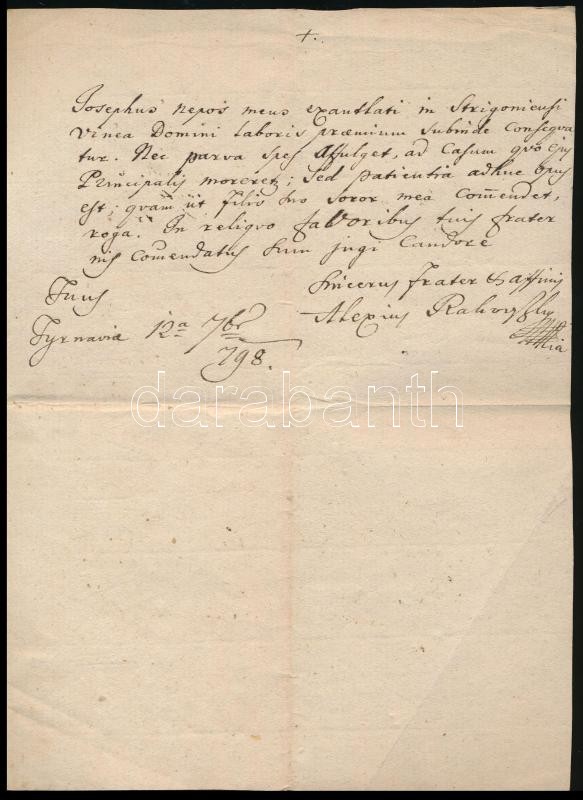 +.
Josephus nepos meus exantlati in Strigoniensi
Vinea Domini Laboris præmium subinde Consequa
tur. Nec parva spes affulget, ad Casum quo ejus
Principalis moreret; Sed patientia adhuc opus
est; quam ut filio suo soror mea Commendet,
roga. In reliquo favoribus tuis frater
nis Comendatus sum jugi Candore
Tuus
Sincerus frater & affinis
Tyrnaviæ 12a 7br
Alexius
798.
darabanth